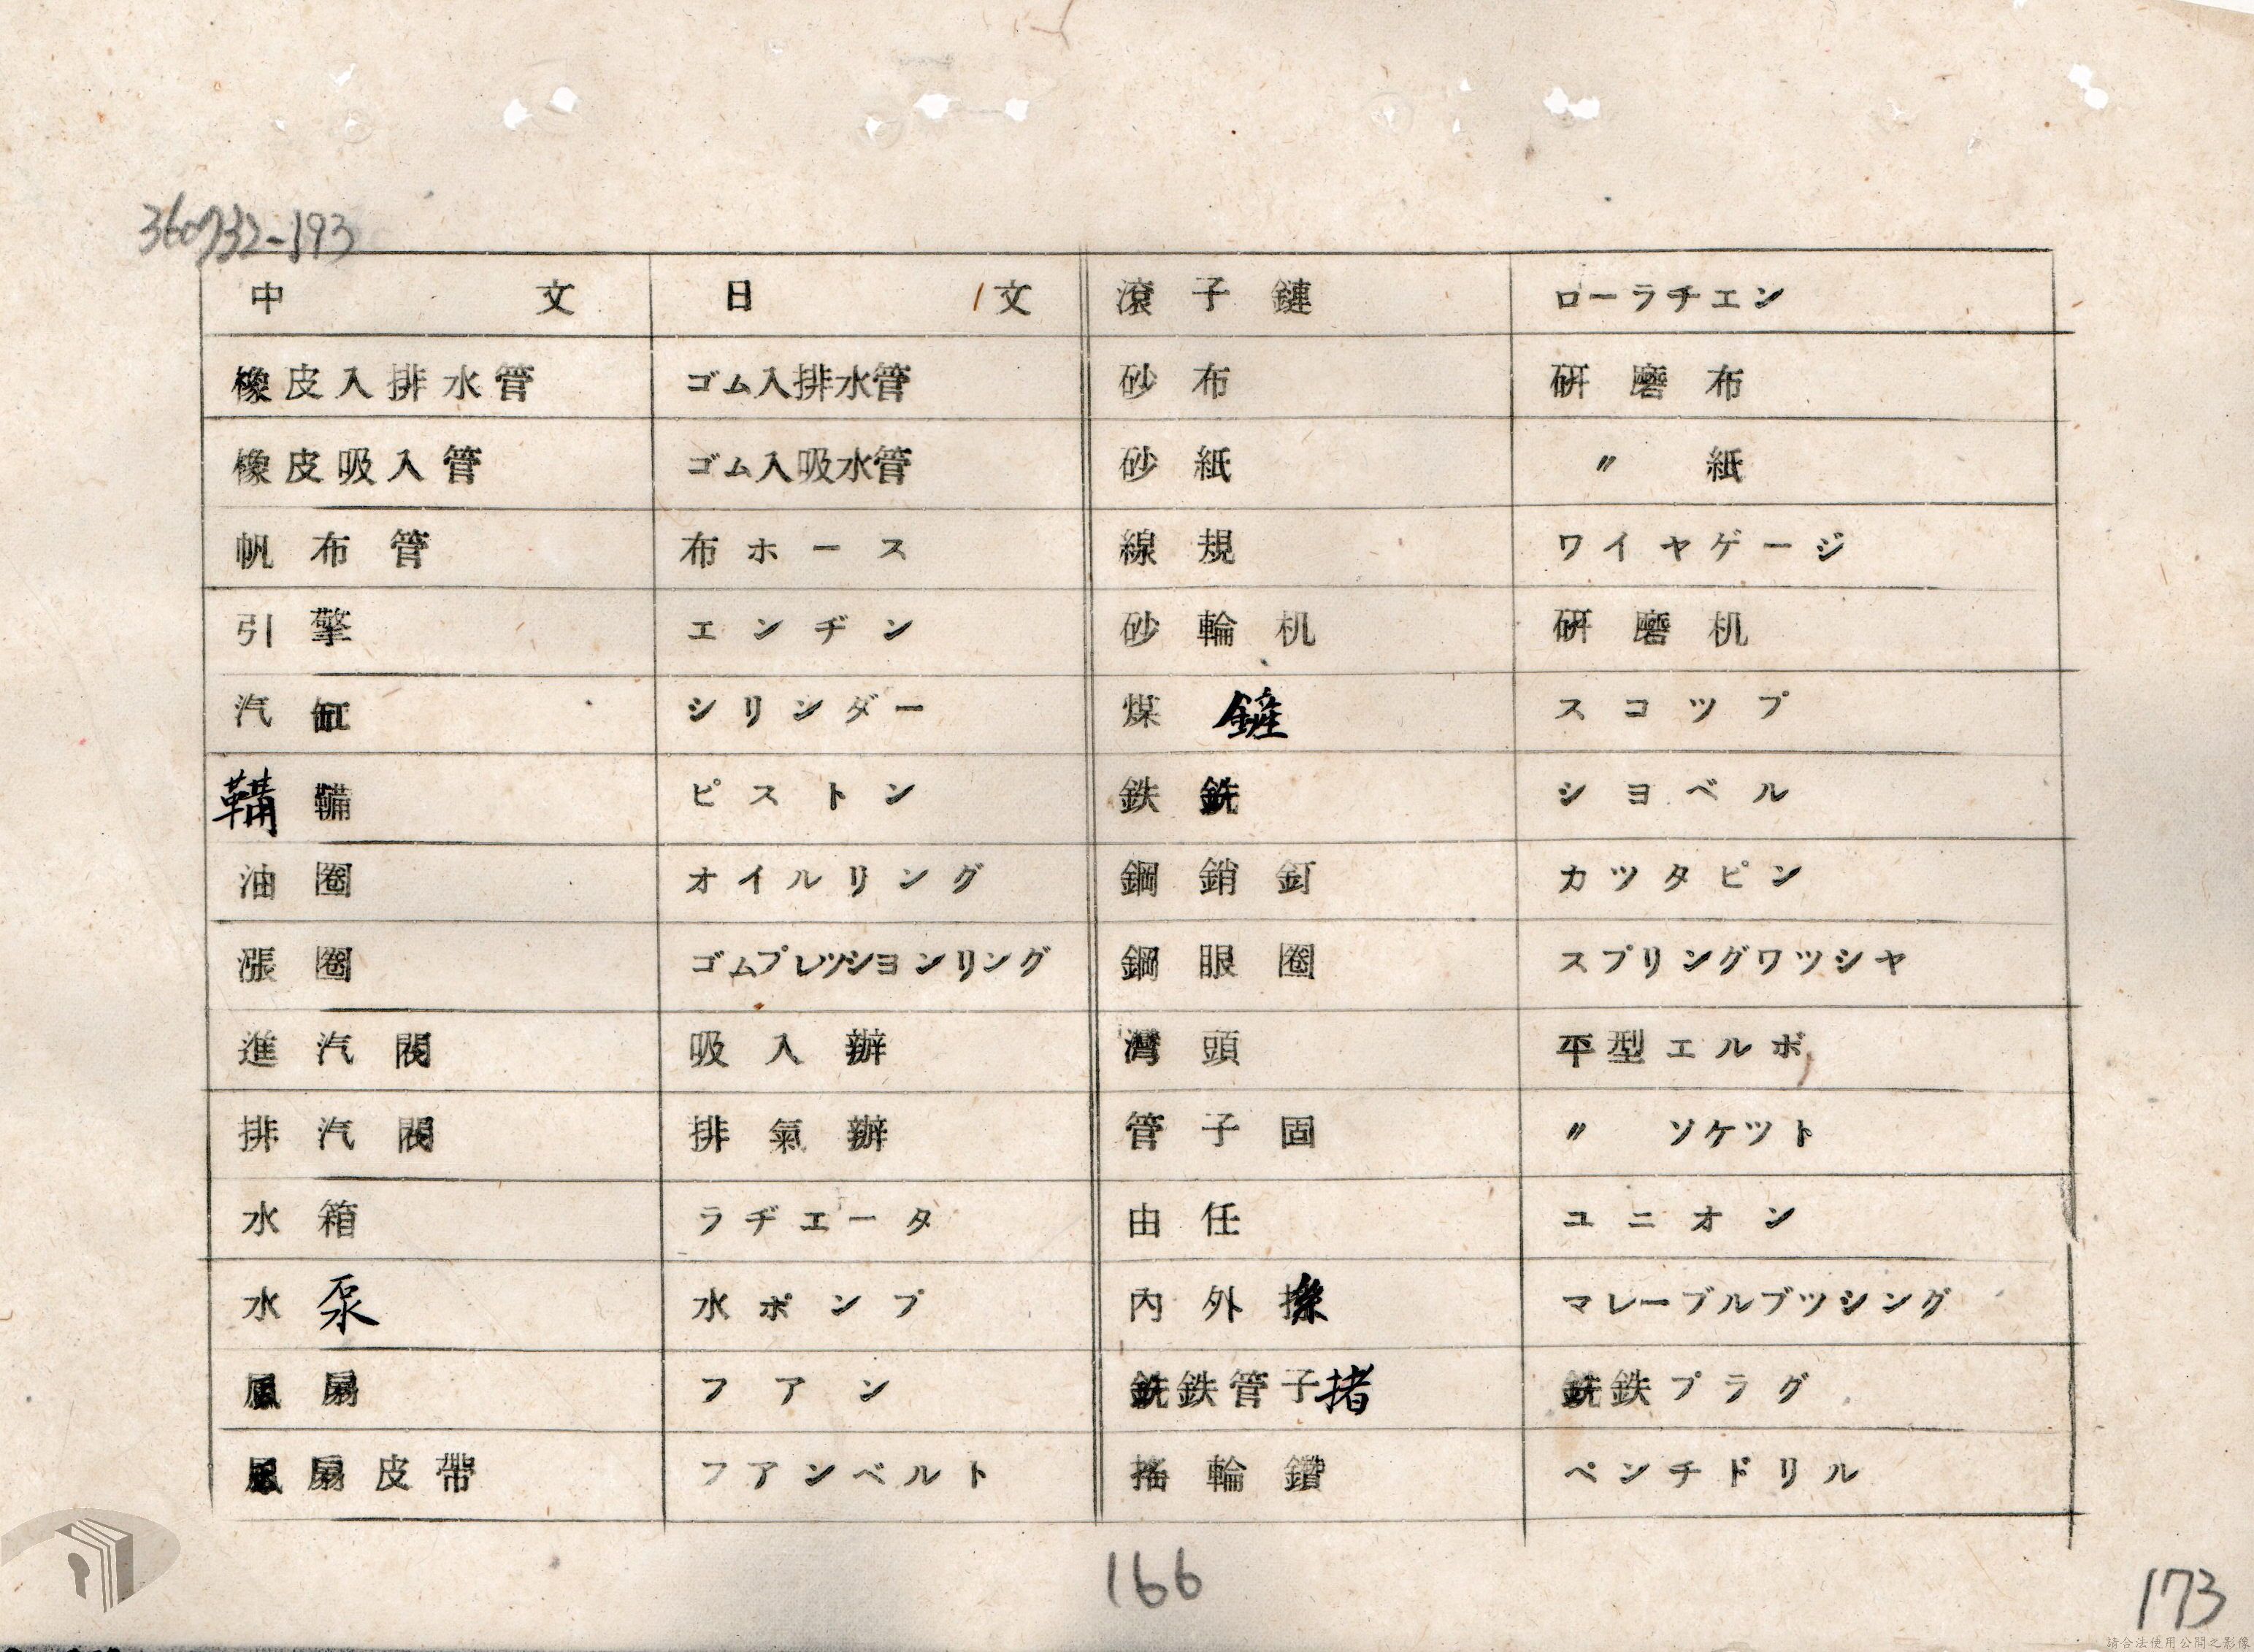 360732-193
中文 日文 滾子鏈 ローラチエン
橡皮入排水管 ゴム入排水管 砂布 研磨布
橡皮吸入管 ゴム入吸水管 砂紙 〃紙
帆布管 布ホース 線規 ワイヤゲージ
引擎 エンヂン 砂輪机 研磨机
汽缸 シリンダー 煤鏟 スコツプ
鞲鞴 ピストン 鉄銑 シヨベル
油圈 オイルリング 鋼銷釘 カツタピン
漲圈 ゴムプレツシヨンリング 鋼眼圈 スプリングワツシヤ
進汽閥 吸入辦 灣頭 平型エルボ
排汽閥 排氣辦 管子固 〃ソケツト
水箱 ラヂエータ 由任 ユニオン
水泵 水ポンプ 內外 マレーブルブツシング
風扇 フアン 銑鉄管子撦 銑鉄プラグ
風扇皮帶 フアンベルト 搖輪鑽 ベンチドリル
166
173
請合法使用公開之影像